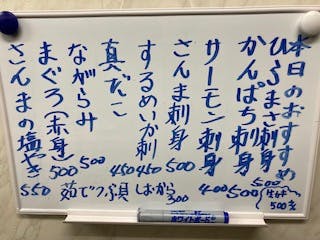 本日のおすすめ
ひらまさ刺身 500
かんぱち刺身 500
サーモン刺身 400
さんま刺身 500
するめいか刺 450
真だこ 450
ながらみ 500
まぐろ(赤身) 500
さんまの塩やき 550
茹でつぶ貝
しおから 300
500
ホワイトボード